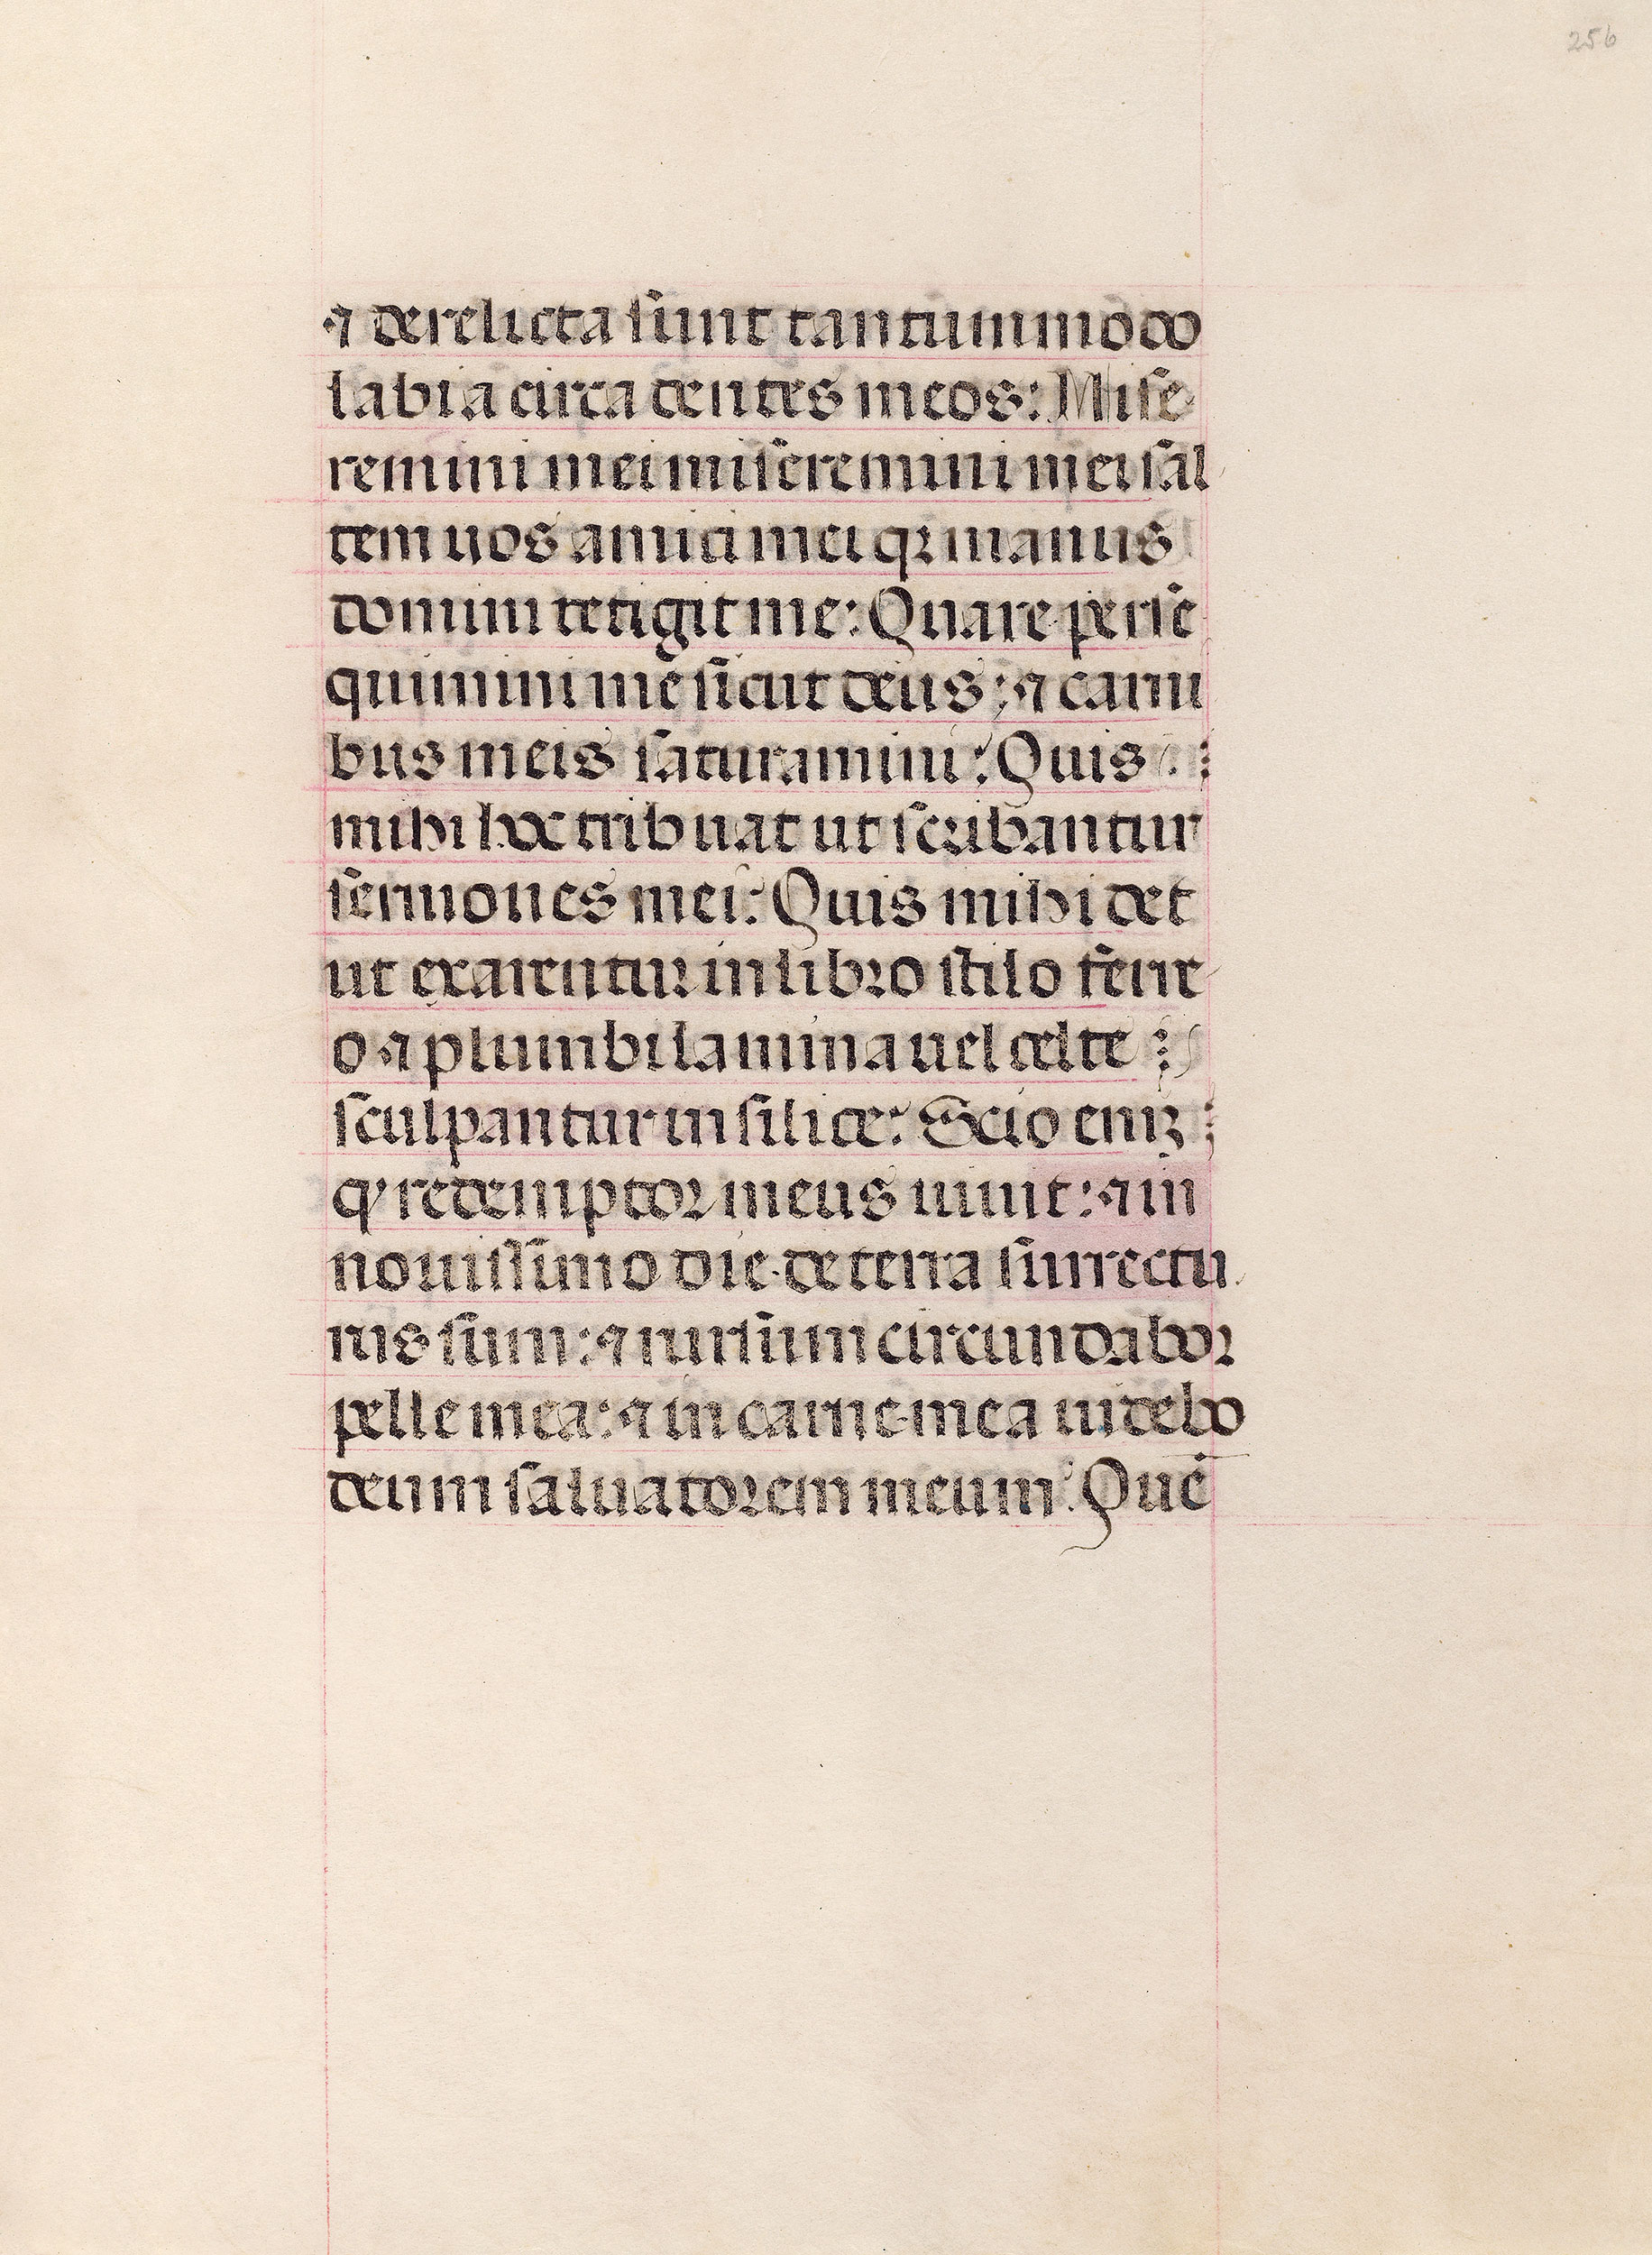 256
⁊ derelicta sunt tantummodo
labia circa dentes meos: Mise
remini mei miseremini mei sal
tem uos amici mei qꝛ manus
domini tetigit me: Quare perse
quimini me sicut deus: ⁊ carni
bus meis saturamini: Quis
mihi hoc tribuat ut scribantur
sermones mei: Quis mihi det
ut exarentur in libro stilo ferr
o ⁊ plumbi lamina uel celte
sculpantur in silice: Scio eniꝫ
qꝰ redemptor meus uiuit: ⁊ in
nouissimo die de terra surrectu
rus sum: ⁊ rursum circundabor
pelle mea: ⁊ in carne mea uidebo
deum saluatorem meum: Quē